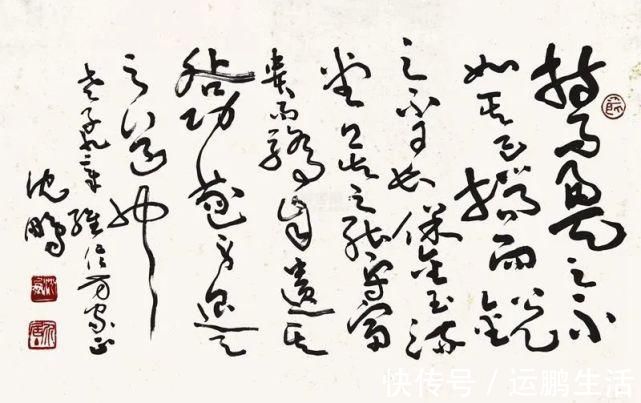 持而盈之不
如其已揣而銳
之不可长保金玉满
堂莫之能守富
贵而骄自遗其
咎功遂身退天
之道也
老子九章 维信方家正
沈鹏
快传号／运鹏生活